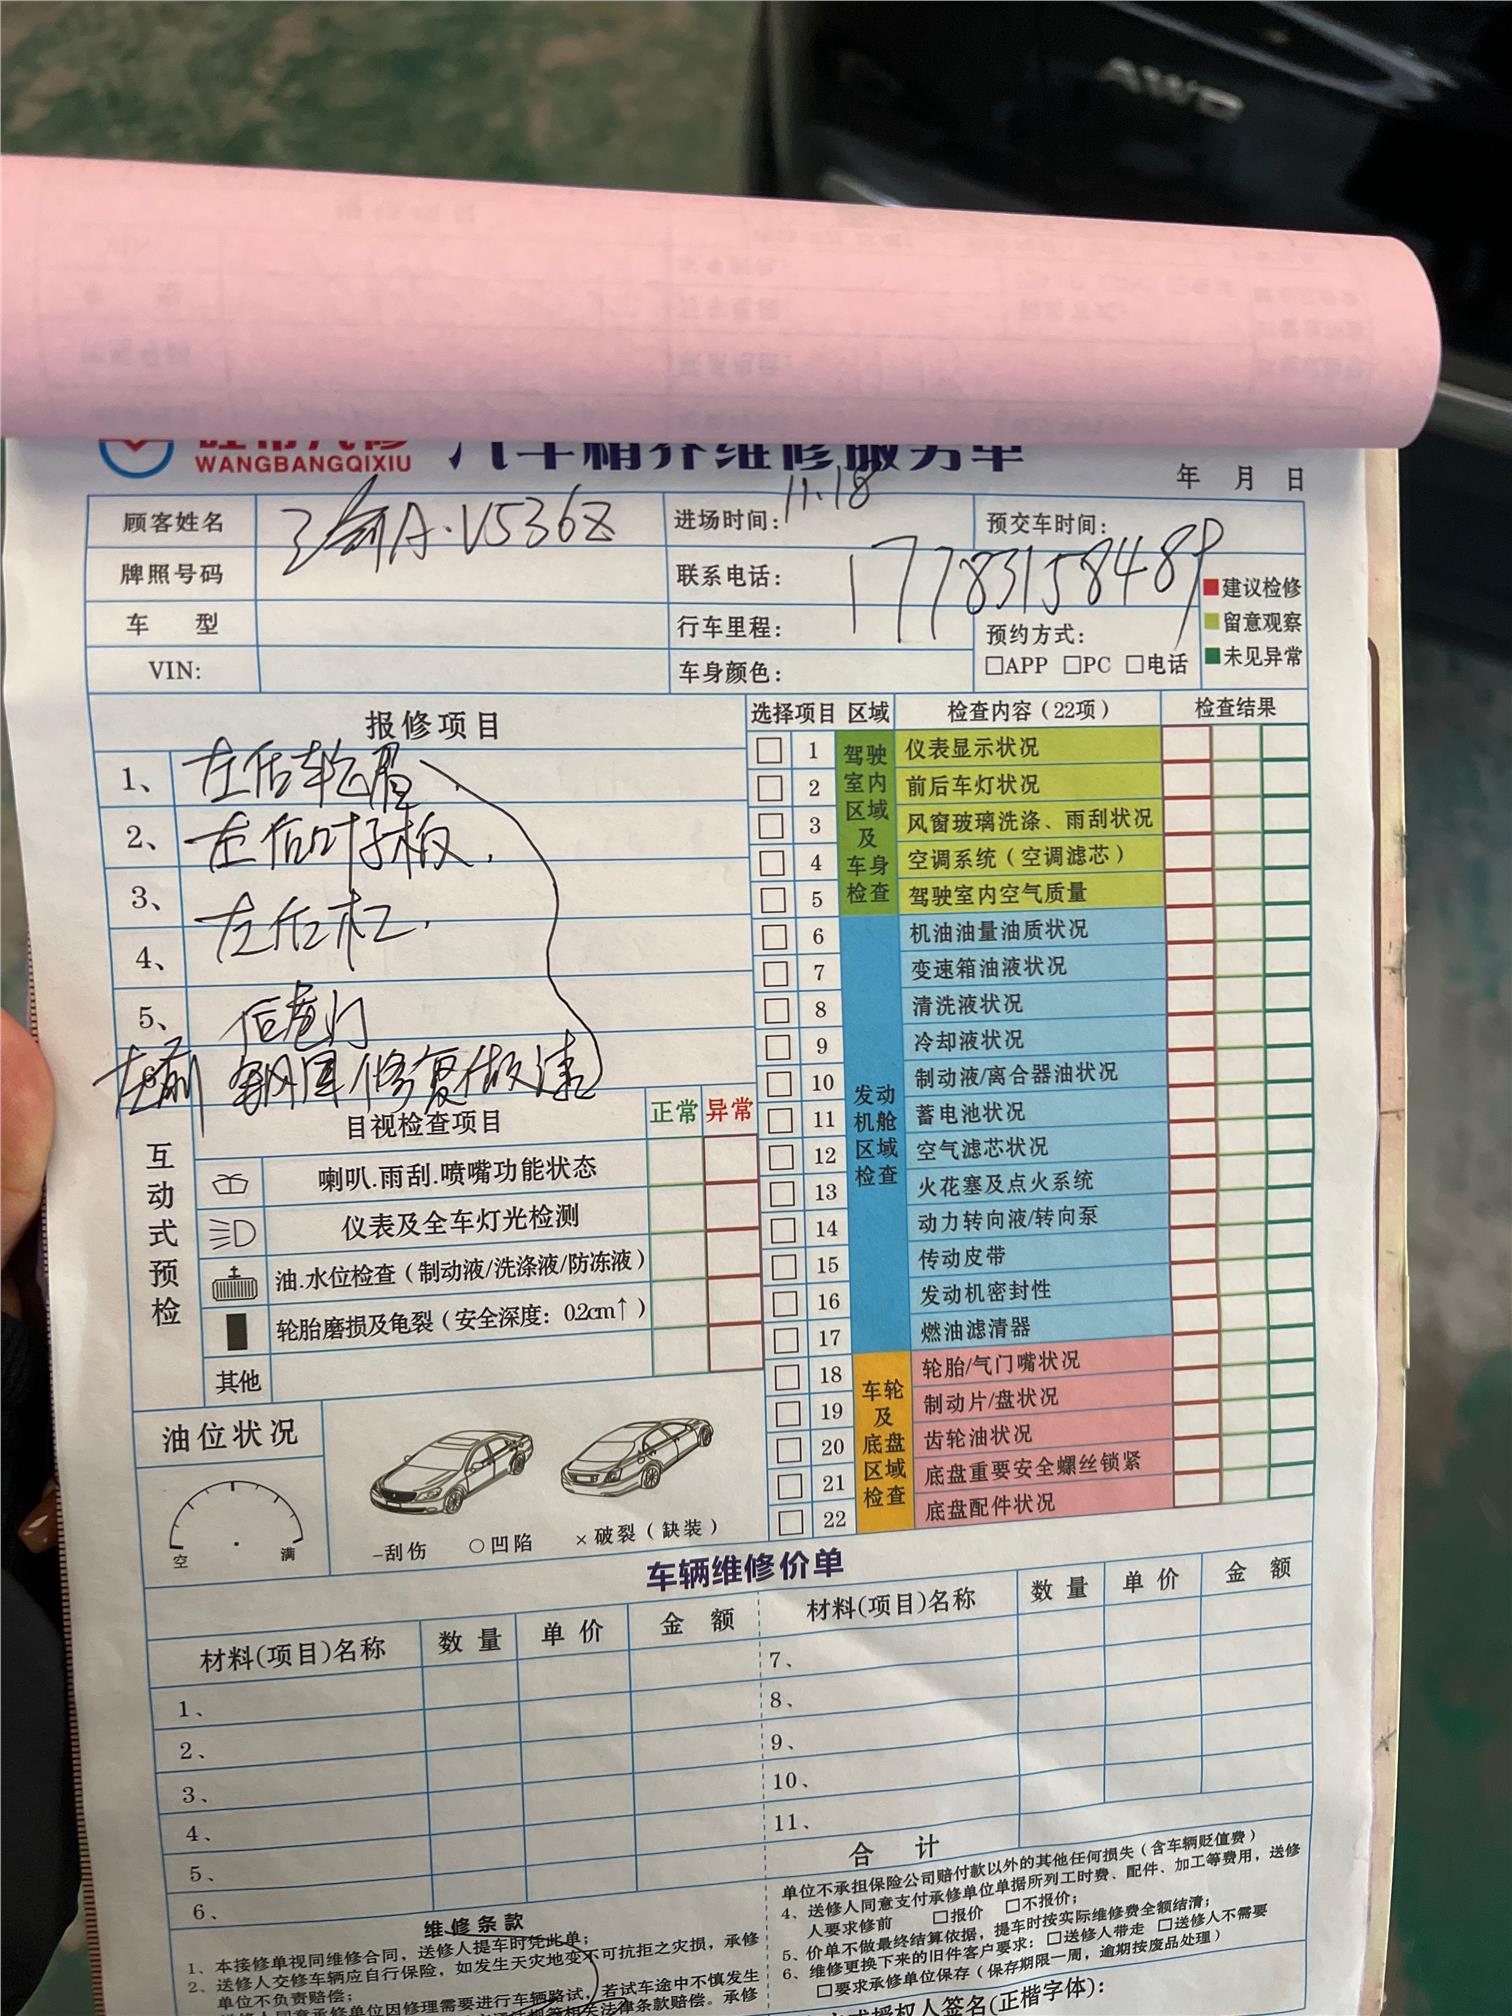 AWD
旺邦汽修 汽车精养维修服务单
WANGBANGQIXIU
年 月 日
顾客姓名 渝A·V536Z 进场时间: 11.18 预交车时间:
牌照号码 联系电话: 17783158489
车 型 行车里程: 预约方式:
VIN: 车身颜色: □APP □PC □电话
建议检修
留意观察
未见异常
报修项目
1、 左后轮眉
2、 左后叶子板.
3、 左后杠.
4、
5、 后尾门
左前 钢圈修复做漆
互动式预检
目视检查项目 正常 异常
喇叭.雨刮.喷嘴功能状态
仪表及全车灯光检测
油.水位检查(制动液/洗涤液/防冻液)
轮胎磨损及龟裂(安全深度: 0.2cm↑)
其他
油位状况
空 满
-刮伤 ○凹陷 ×破裂(缺装)
选择项目 区域 检查内容(22项) 检查结果
驾驶室内区域及车身检查
1 仪表显示状况
2 前后车灯状况
3 风窗玻璃洗涤、雨刮状况
4 空调系统(空调滤芯)
5 驾驶室内空气质量
发动机舱区域检查
6 机油油量油质状况
7 变速箱油液状况
8 清洗液状况
9 冷却液状况
10 制动液/离合器油状况
11 蓄电池状况
12 空气滤芯状况
13 火花塞及点火系统
14 动力转向液/转向泵
15 传动皮带
16 发动机密封性
17 燃油滤清器
车轮及底盘区域检查
18 轮胎/气门嘴状况
19 制动片/盘状况
20 齿轮油状况
21 底盘重要安全螺丝锁紧
22 底盘配件状况
车辆维修价单
材料(项目)名称 数量 单价 金额 材料(项目)名称 数量 单价 金额
1、 7、
2、 8、
3、 9、
4、 10、
5、 11、
6、 合 计
维修条款
1、本接修单视同维修合同，送修人提车时凭此单；
2、送修人交修车辆应自行保险，如发生天灾地变不可抗拒之灾损，承修
单位不负责赔偿；
送修人同意承修单位因修理需要进行车辆路试，若试车途中不慎发生
相关法律条款赔偿。承修
单位不承担保险公司赔付款以外的其他任何损失(含车辆贬值费)
4、送修人同意支付承修单位单据所列工时费、配件、加工等费用，送修
人要求修前 □报价 □不报价；
5、价单不做最终结算依据，提车时按实际维修费全额结清；
6、维修更换下来的旧件客户要求：□送修人带走 □送修人不需要
□要求承修单位保存(保存期限一周，逾期按废品处理)
授权人签名(正楷字体)：